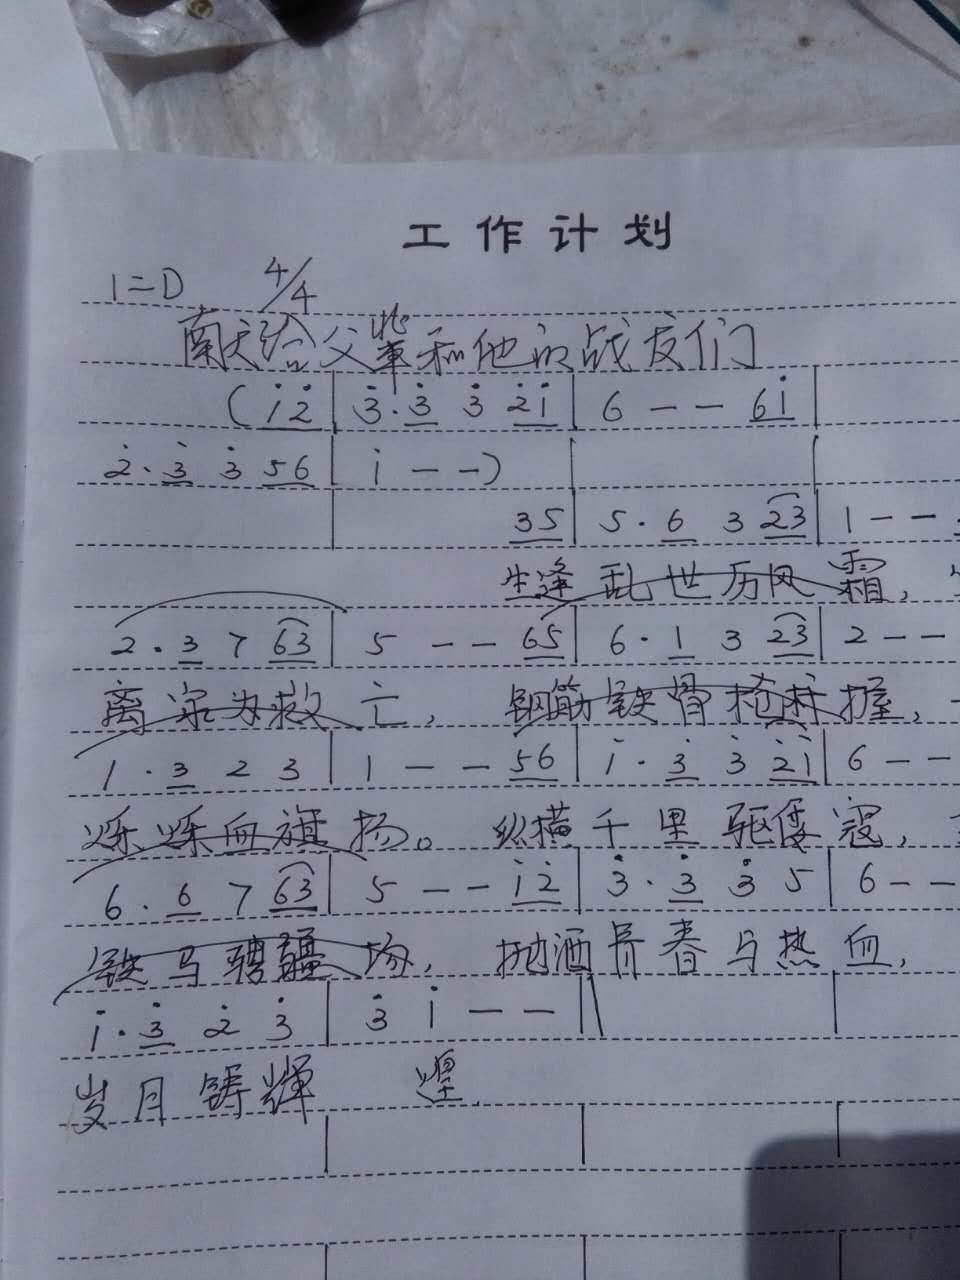 工作计划
1=D 4/4
献给父辈和他的战友们
(i̇ 2̇ | 3̇·3̇ 3̇ 2̇i̇ | 6 — — 6i̇ |
2̇·3̇ 3̇ 56 | i̇ — —)
35 | 5·6 3 23 | 1 — —
生逢乱世历风霜,
2·3 7 63 | 5 — — 65 | 6·1 3 23 | 2 — —
离家为救亡, 钢筋铁骨枪麻握,
1·3 2 3 | 1 — — 56 | i̇·3̇ 3̇ 2̇i̇ | 6 — —
烁烁血旗扬。 纵横千里驱倭寇,
6·6 7 63 | 5 — — i̇2̇ | 3̇·3̇ 3̇ 5 | 6 — —
铁马骋疆场, 抛洒青春与热血,
i̇·3̇ 2̇ 3̇ | 3̇ i̇ — — ‖
岁月铸辉 煌.